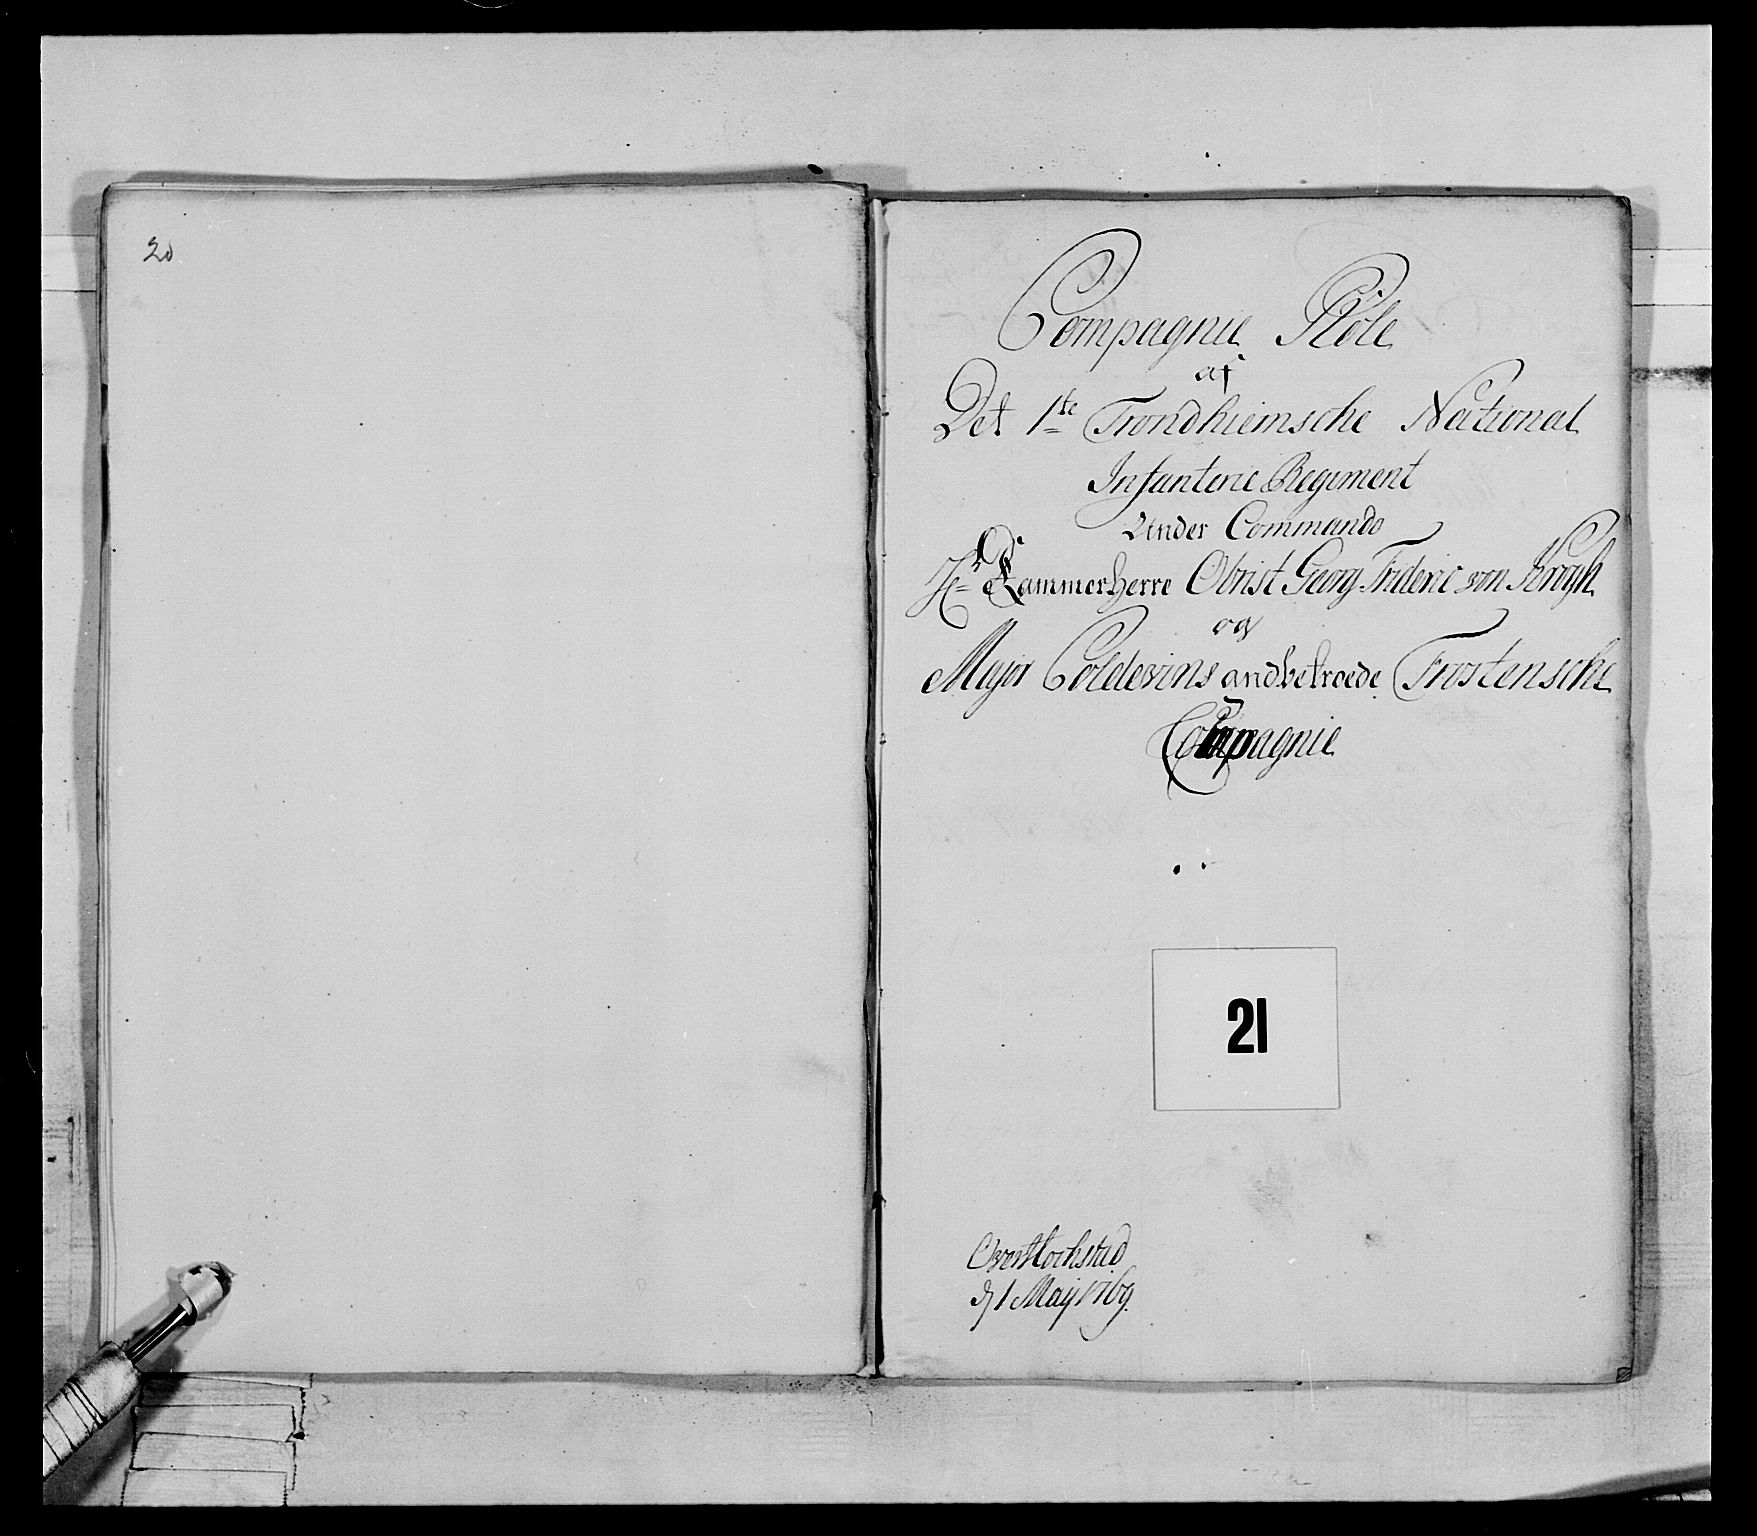 20
Compagnie Rolle
af
Det 1te Trondhiemsche National
Infanterie Regiment
Under Commando
Hr Kammerherre Obrist Georg Frideric von Krogh
og
Major Coldevins andbetroede Frostensche
Compagnie
21
OverHochstad
d 1 Maij 1769.